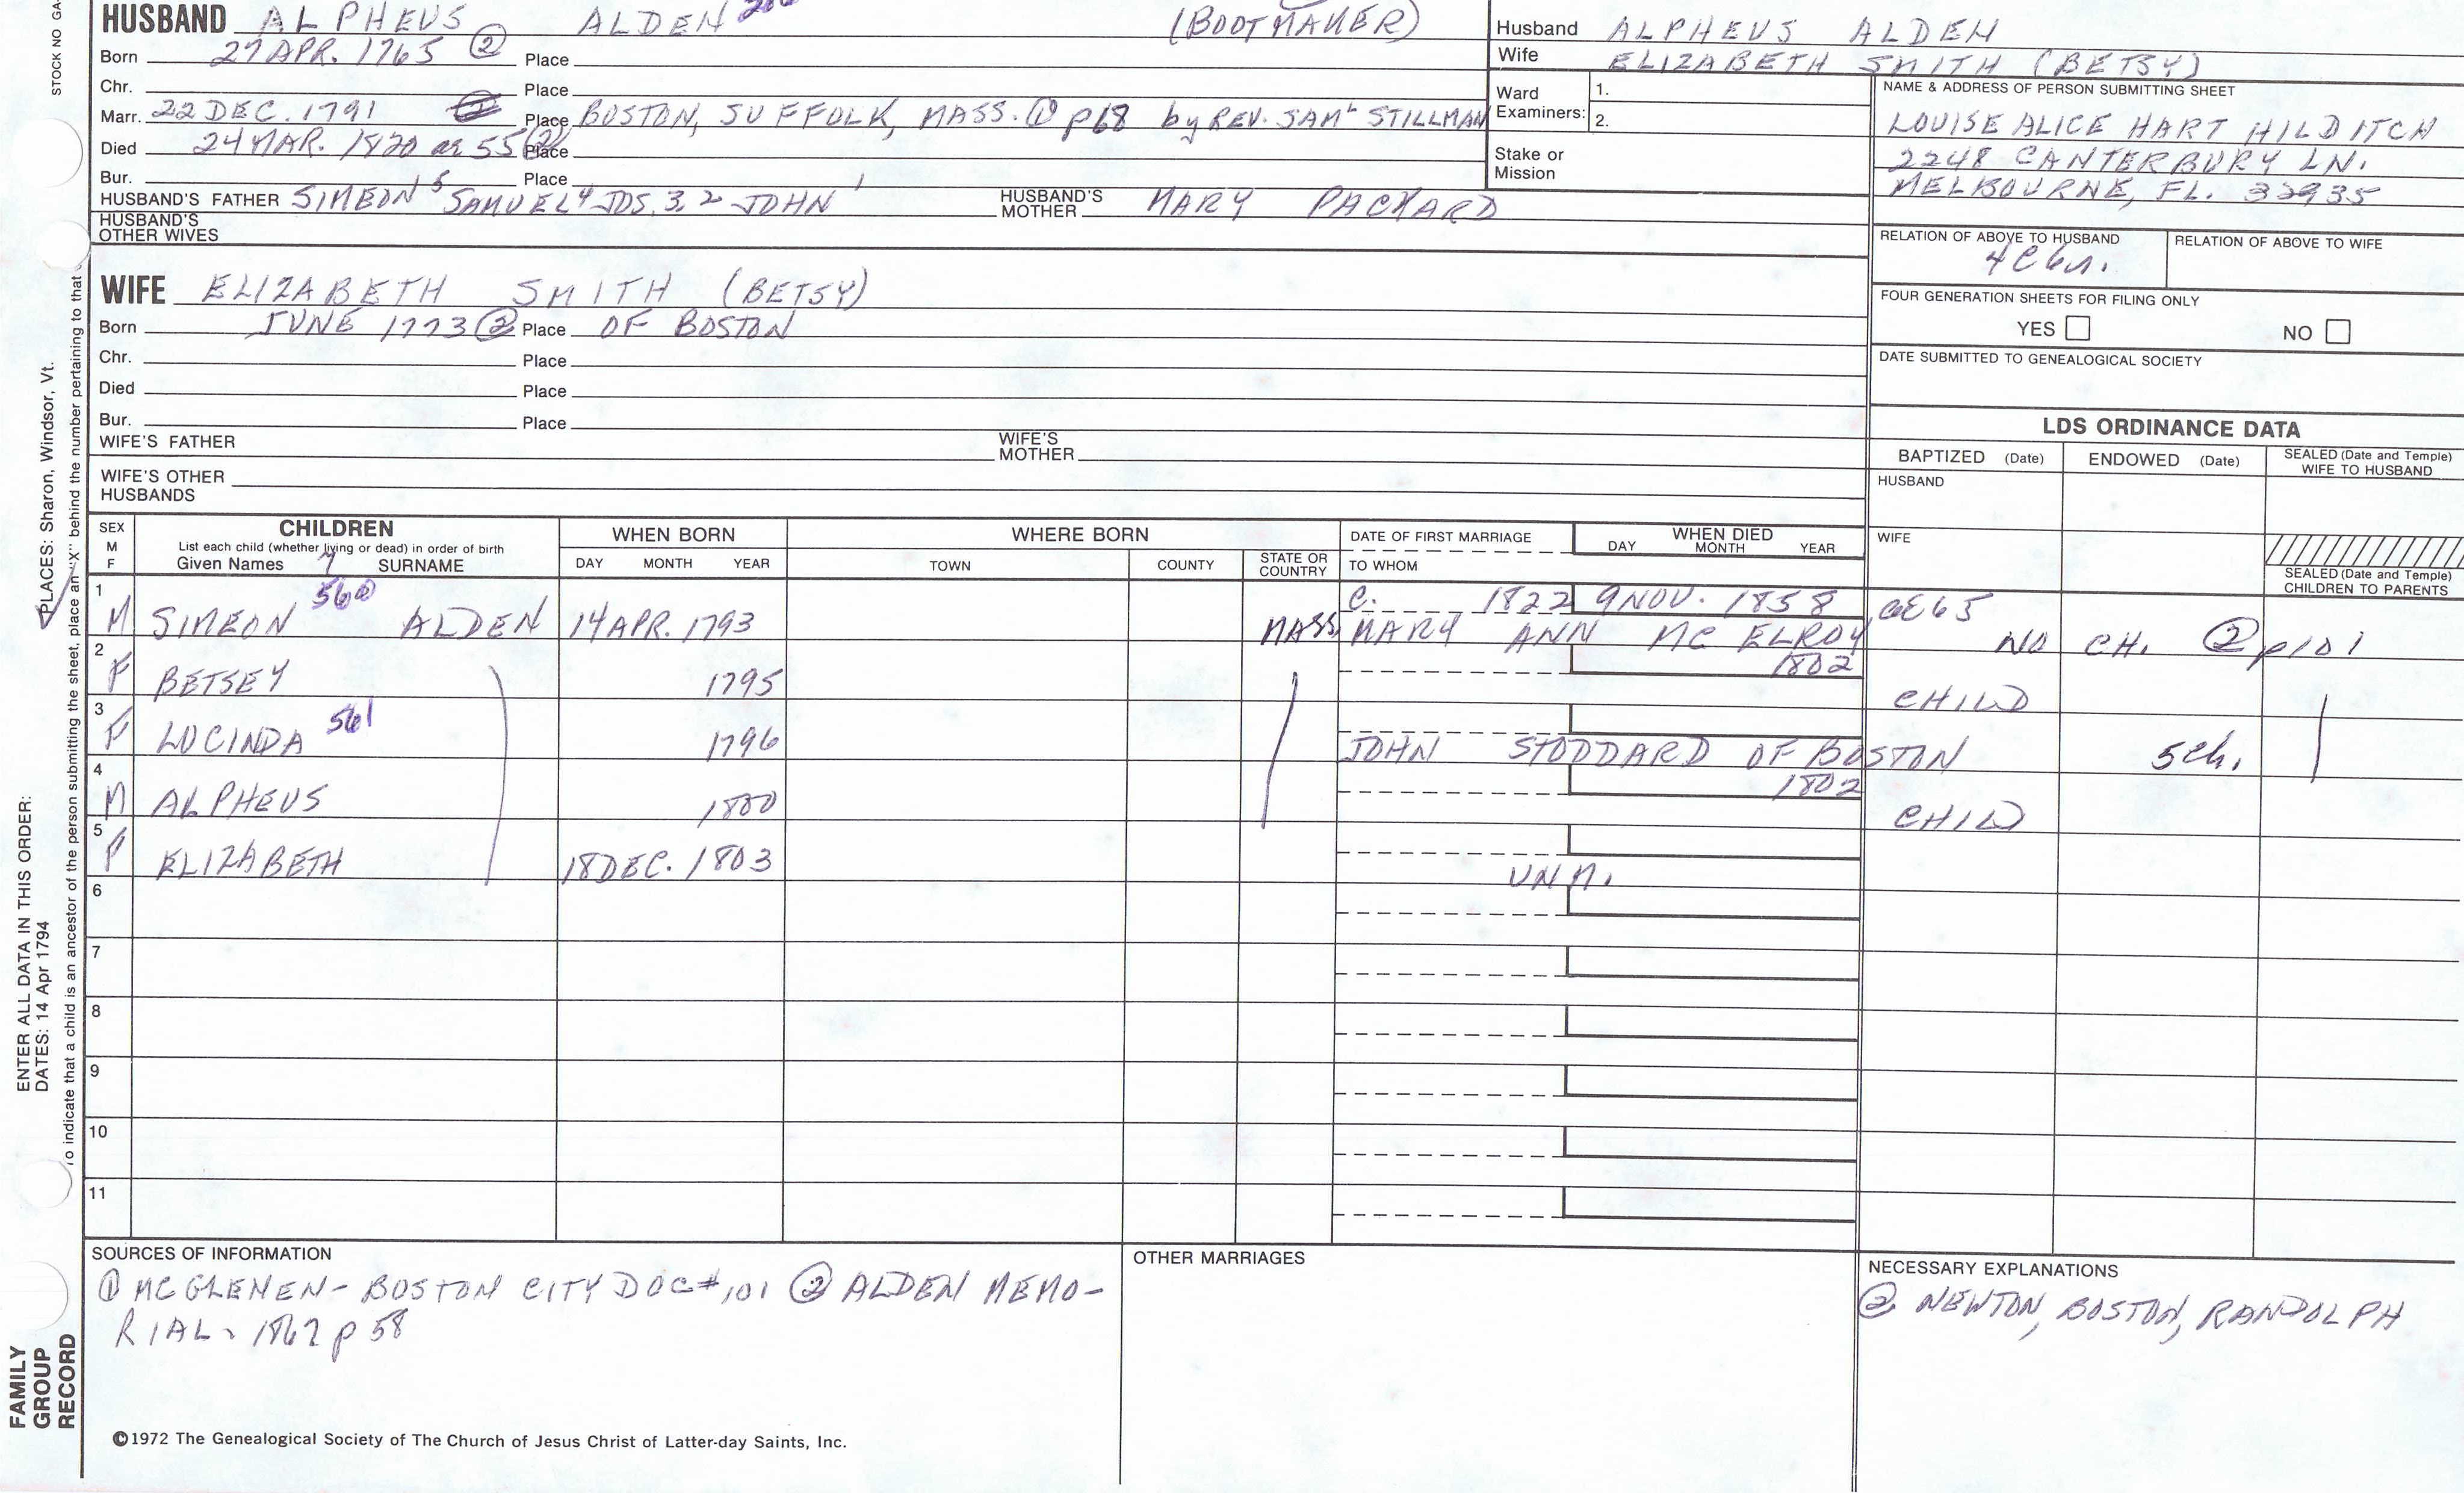 STOCK NO GA-
HUSBAND ALPHEUS ALDEN (BOOTMAKER)
Born 27 APR. 1765 ② Place
Chr. Place
Marr. 22 DEC. 1791 Place BOSTON, SUFFOLK, MASS. ① p68 by REV. SAM^L STILLMAN
Died 24 MAR. 1820 ae 55 ② Place
Bur. Place
HUSBAND'S FATHER SIMEON 5 SAMUEL 4 JOS. 3, 2 JOHN 1 HUSBAND'S MOTHER MARY PACKARD
HUSBAND'S OTHER WIVES
Husband ALPHEUS ALDEN
Wife ELIZABETH SMITH (BETSY)
Ward Examiners: 1.
2.
Stake or Mission
NAME & ADDRESS OF PERSON SUBMITTING SHEET
LOUISE ALICE HART HILDITCH
2248 CANTERBURY LN.
MELBOURNE, FL. 32935
RELATION OF ABOVE TO HUSBAND RELATION OF ABOVE TO WIFE
FOUR GENERATION SHEETS FOR FILING ONLY
YES NO
DATE SUBMITTED TO GENEALOGICAL SOCIETY
WIFE ELIZABETH SMITH (BETSY)
Born JUNE 1773 ② Place OF BOSTON
Chr. Place
Died Place
Bur. Place
WIFE'S FATHER WIFE'S MOTHER
WIFE'S OTHER HUSBANDS
LDS ORDINANCE DATA
BAPTIZED (Date) ENDOWED (Date) SEALED (Date and Temple) WIFE TO HUSBAND
HUSBAND
WIFE
SEALED (Date and Temple) CHILDREN TO PARENTS
SEX M F
CHILDREN
List each child (whether living or dead) in order of birth
Given Names 7 SURNAME
WHEN BORN
DAY MONTH YEAR
WHERE BORN
TOWN COUNTY STATE OR COUNTRY
DATE OF FIRST MARRIAGE
TO WHOM
WHEN DIED
DAY MONTH YEAR
1 M SIMEON 560 ALDEN 14 APR. 1793 MASS. C. 1822 9 NOV. 1858 ae 65
MARY ANN MC ELROY NO CH. ② p101
2 F BETSEY 1795 1802 CHILD
3 F LUCINDA 561 1796 JOHN STODDARD OF BOSTON 5 ch.
4 M ALPHEUS 1800 1802 CHILD
5 F ELIZABETH 18 DEC. 1803 UNM.
6
7
8
9
10
11
SOURCES OF INFORMATION
① MC GLENEN - BOSTON CITY DOC # 101 ② ALDEN MEMO-
RIAL - 1867 p 58
OTHER MARRIAGES
NECESSARY EXPLANATIONS
② NEWTON, BOSTON, RANDOLPH
©1972 The Genealogical Society of The Church of Jesus Christ of Latter-day Saints, Inc.
ENTER ALL DATA IN THIS ORDER:
DATES: 14 Apr 1794
PLACES: Sharon, Windsor, Vt.
To indicate that a child is an ancestor of the person submitting the sheet, place an "X" behind the number pertaining to that
FAMILY
GROUP
RECORD